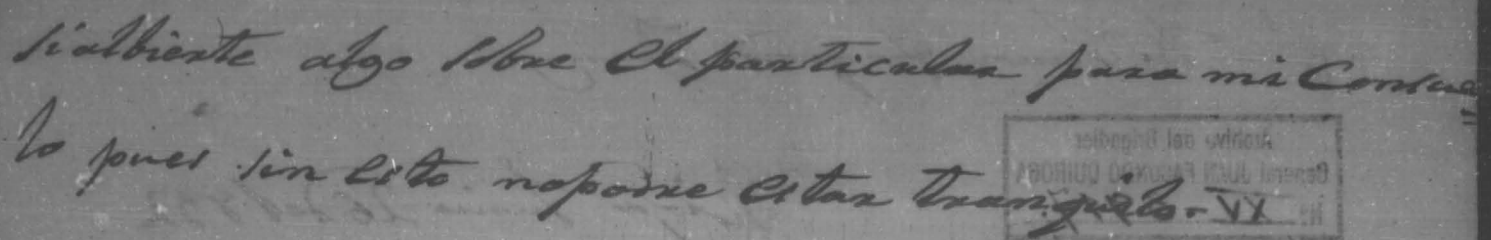 sialbierte algo sobre el particular para mi Consue=
lo pues sin esto nopodre estar tranquilo.
Archivo del Brigadier
General JUAN FACUNDO QUIROGA
No. XV